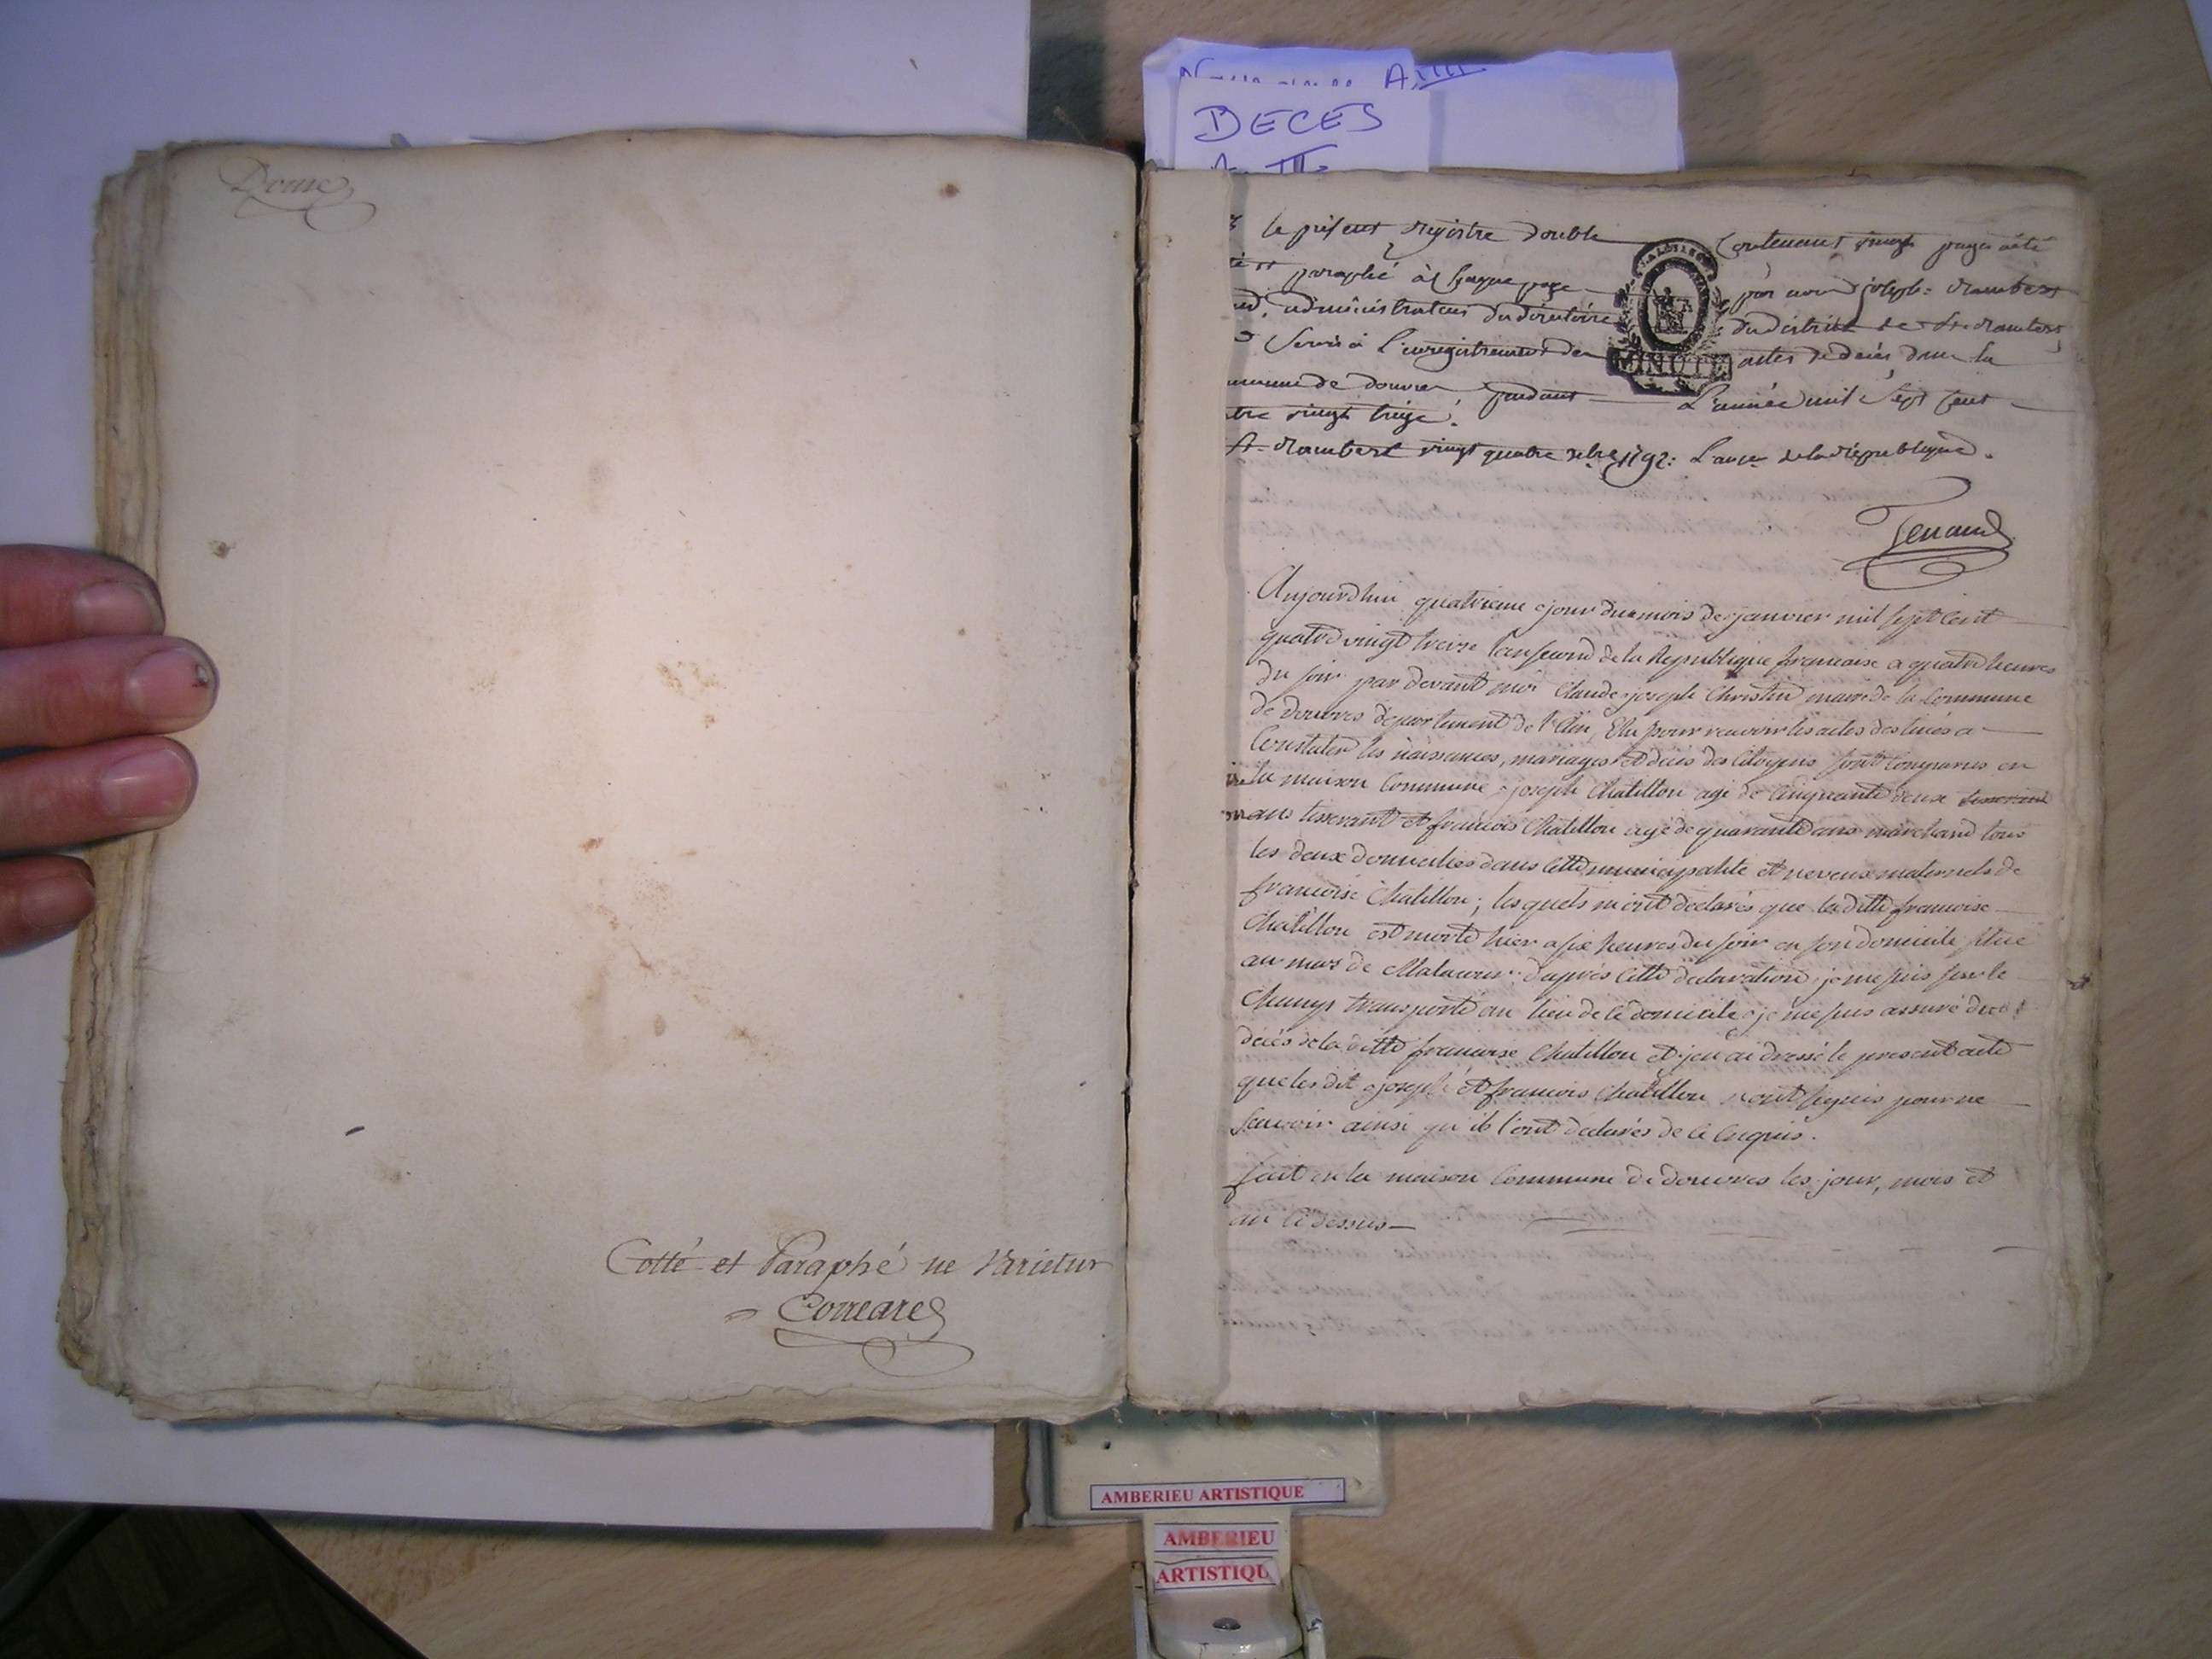 DECES
Douze
Cotté et Paraphé ne Varietur
Correare
le présent registre double contenant vingt pages a été
paraphé à chaque page par nous joseph rambert
administrateur du directoire du district de St. rambert
Servir à l'enregistrement des actes de décès dans la
MINUTE
de douvres pendant L'année mil Sept Cent
vingt treize.
St. Rambert vingt quatre 1792: L'an 1er de la république.
Tenand
Aujourdhui quatrieme jour du mois de janvier mil sept cent
quatre vingt treize l'an second de la République francaise a quatre heures
du soir par devant moi Claude joseph Christin maire de la Commune
de douvres département de l'Ain, Elu pour recevoir les actes destinés a
Constater les naissances, mariages et décès des Citoyens sont comparus en
la maison Commune joseph Chatillon agé de Cinquante deux
ans tisserant et francois Chatillon agé de quarante ans marchand tous
les deux domiciliés dans cette municipalité et neveux maternels de
francoise Chatillon; lesquels m'ont déclarés que la ditte francoise
Chatillon est morte hier a six heures du soir en son domicile situé
au mas de d'après cette declaration, je me suis sur le
Champ transporté au lieu de ce domicile je me suis assuré du
décès de la ditte francoise Chatillon et j'en ai dressé le present acte
que les dit joseph et francois Chatillon n'ont signés pour ne
Scavoir ainsi qu'ils l'ont declarés de ce Enquis.
fait en la maison Commune de douvres les jour, mois et
an ci dessus
AMBERIEU ARTISTIQUE
AMBERIEU
ARTISTIQU